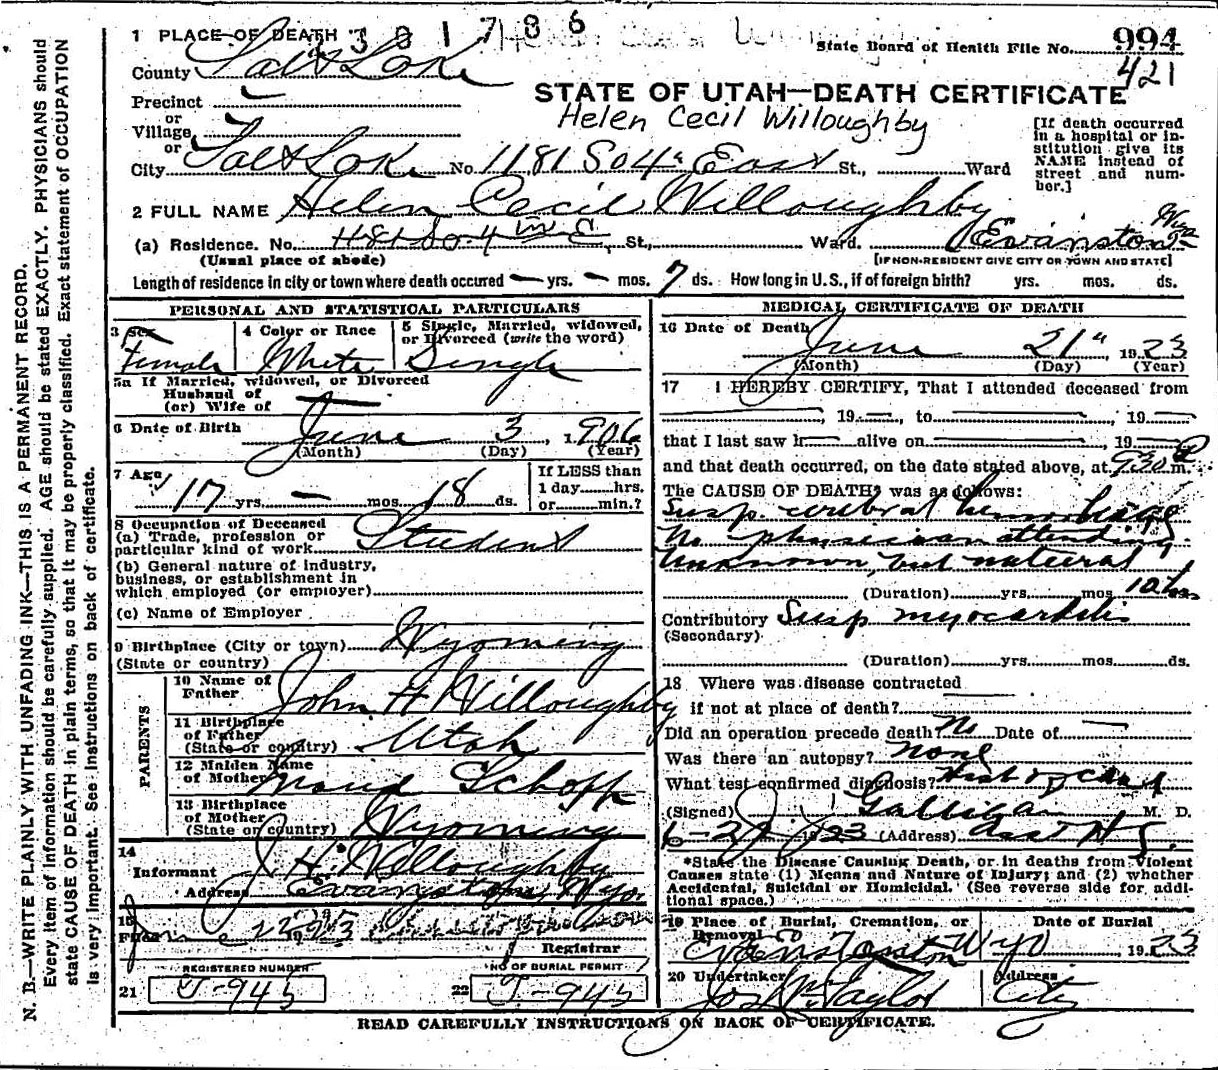 N. B.—WRITE PLAINLY WITH UNFADING INK—THIS IS A PERMANENT RECORD.
Every item of information should be carefully supplied. AGE should be stated EXACTLY. PHYSICIANS should
state CAUSE OF DEATH in plain terms, so that it may be properly classified. Exact statement of OCCUPATION
is very important. See instructions on back of certificate.
1 PLACE OF DEATH
State Board of Health File No. 994
421
County Salt Lake
STATE OF UTAH—DEATH CERTIFICATE
Helen Cecil Willoughby
Precinct
or
Village
or
City Salt Lake No. 1181 So 4" East St., Ward
[If death occurred
in a hospital or in-
stitution give its
NAME instead of
street and num-
ber.]
2 FULL NAME Helen Cecil Willoughby
(a) Residence. No. 1181 So. 4 E St., Ward. Evanston Wyo
(Usual place of abode) [IF NON-RESIDENT GIVE CITY OR TOWN AND STATE]
Length of residence in city or town where death occured — yrs. — mos. 7 ds. How long in U.S., if of foreign birth? yrs. mos. ds.
PERSONAL AND STATISTICAL PARTICULARS
3 Sex
Female
4 Color or Race
White
5 Single, Married, widowed,
or Divorced (write the word)
Single
5a If Married, widowed, or Divorced
Husband of
(or) Wife of —
6 Date of Birth June 3, 1906
(Month) (Day) (Year)
7 Age 17 yrs. — mos. 18 ds.
If LESS than
1 day hrs.
or min.?
8 Occupation of Deceased
(a) Trade, profession or
particular kind of work Student
(b) General nature of industry,
business, or establishment in
which employed (or employer)
(c) Name of Employer
9 Birthplace (City or town) Wyoming
(State or country)
PARENTS
10 Name of
Father John H Willoughby
11 Birthplace
of Father
(State or country) Utah
12 Maiden Name
of Mother Maud Schopp
13 Birthplace
of Mother
(State or country) Wyoming
14
Informant J. H. Willoughby
Address Evanston, Wyo.
15
Filed June 1923
Registrar
REGISTERED NUMBER
21 J-945
NO OF BURIAL PERMIT
22 J-945
MEDICAL CERTIFICATE OF DEATH
16 Date of Death June 21", 1923
(Month) (Day) (Year)
17 I HEREBY CERTIFY, That I attended deceased from
, 19—, to , 19—
that I last saw h— alive on , 19—
and that death occurred, on the date stated above, at 930 P m.
The CAUSE OF DEATH* was as follows:
Susp. cerebral hemorrhage
No physician attending.
Unknown, but natural
(Duration) yrs. mos. 10 hrs
Contributory Susp myocarditis
(Secondary)
(Duration) yrs. mos. ds.
18 Where was disease contracted
if not at place of death?
Did an operation precede death? No Date of —
Was there an autopsy? none
What test confirmed diagnosis? Hist of case
(Signed) J. J. Galligan M. D.
1923 (Address)
*State the Disease Causing Death, or in deaths from Violent
Causes state (1) Means and Nature of Injury; and (2) whether
Accidental, Suicidal or Homicidal. (See reverse side for addi-
tional space.)
19 Place of Burial, Cremation, or
Removal
Evanston Wyo
Date of Burial
1923
20 Undertaker
Jos Wm Taylor
Address
City
READ CAREFULLY INSTRUCTIONS ON BACK OF CERTIFICATE.